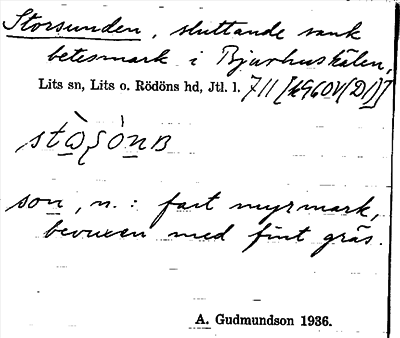 Storsunden, sluttande sank
betesmark i Bjurhuskälen,
Lits sn, Lits o. Rödöns hd, Jtl. l. 711
son, n.: fast myrmark,
bevuxen med fint gräs.
A. Gudmundson 1936.